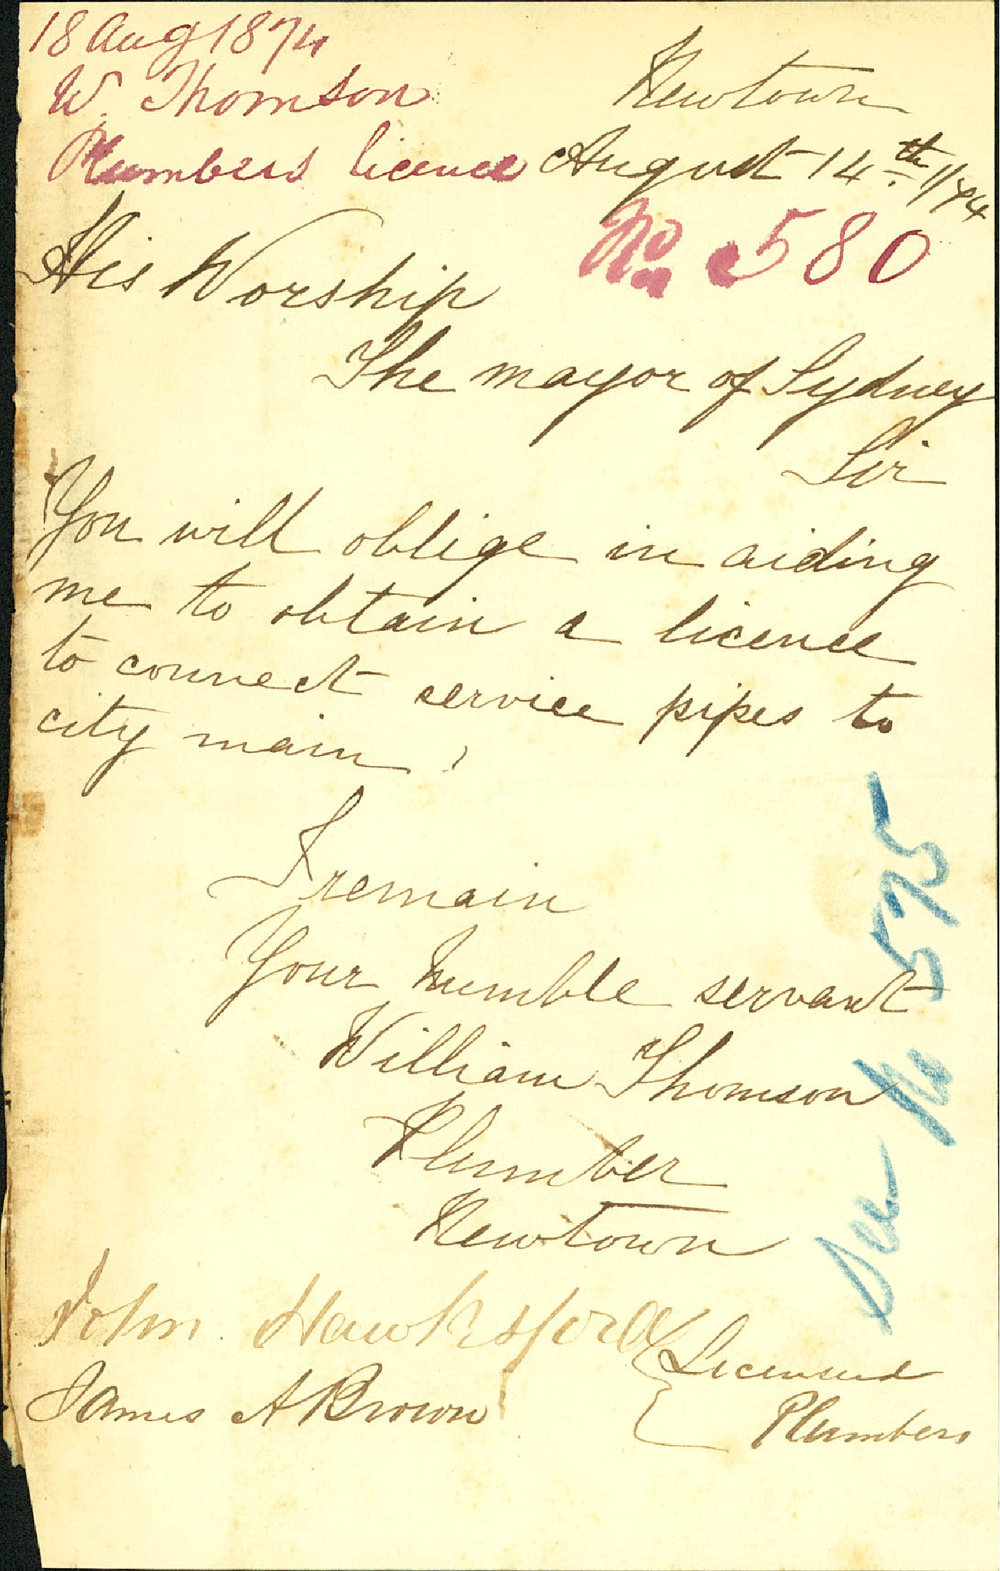 18 Aug 1874
W. Thomson
Plumbers licence
Newtown
August 14th /74
No 580
His Worship
The mayor of Sydney
Sir
You will oblige in aiding
me to obtain a licence
to connect service pipes to
city main,
I remain
Your humble servant
William Thomson
Plumber
Newtown
John Hawksford
James A Brown
Licensed
Plumbers
See No 575